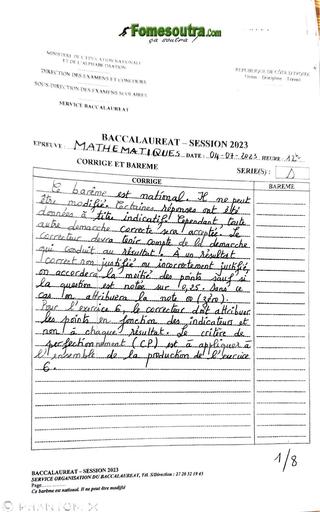 Fomesoutra.com
ça soutra !
MINISTERE DE L'EDUCATION NATIONALE
ET DE L'ALPHABETISATION
DIRECTION DES EXAMENS ET CONCOURS
SOUS-DIRECTION DES EXAMENS SCOLAIRES
SERVICE BACCALAUREAT
REPUBLIQUE DE CÔTE D'IVOIRE
Union - Discipline - Travail
BACCALAUREAT – SESSION 2023
EPREUVE : MATHEMATIQUES DATE : 04-07-2023 HEURE : 12h
CORRIGE ET BAREME SERIE(S) : D
CORRIGE BAREME
Ce barème est national. Il ne peut
être modifié. Certaines réponses ont été
données à titre indicatif. Cependant toute
autre démarche correcte sera acceptée. Le
correcteur devra tenir compte de la démarche
qui conduit au résultat. A un résultat
correct non justifié ou incorrectement justifié,
on accordera la moitié des points sauf si
la question est notée sur 0,25. Dans ce
cas on attribuera la note 0 (zéro).
Pour l'exercice 6, le correcteur doit attribuer
les points en fonction des indicateurs et
non à chaque résultat. Le critère de
perfectionnement (CP) est à appliquer à
l'ensemble de la production de l'exercice
6.
1/8
BACCALAUREAT – SESSION 2023
SERVICE ORGANISATION DU BACCALAUREAT, Tél. S/Direction : 27 20 32 19 45
Page
Ce barème est national. Il ne peut être modifié
PHANTOM X